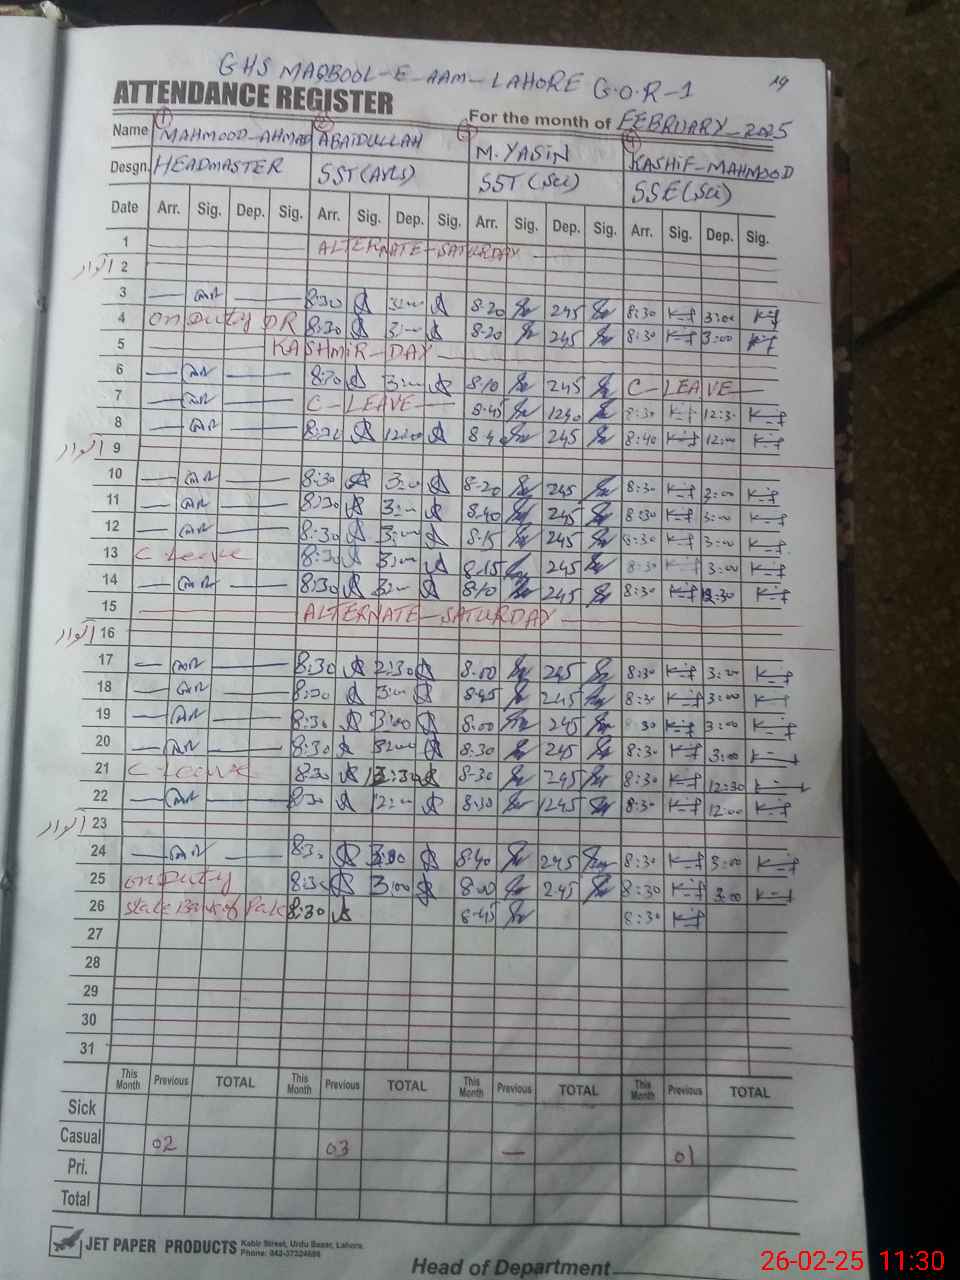 19
GHS MAQBOOL-E-AAM-LAHORE G.O.R-1
ATTENDANCE REGISTER For the month of FEBRUARY-2025
Name 1 MAHMOOD-AHMAD 2 ABAIDULLAH 3 M.YASIN 4 KASHIF-MAHMOOD
Desgn. HEADMASTER SST(Arts) SST(Sci) SSE(Sci)
Date Arr. Sig. Dep. Sig. Arr. Sig. Dep. Sig. Arr. Sig. Dep. Sig. Arr. Sig. Dep. Sig.
1 ALTERNATE-SATURDAY
اتوار 2
3 8:30 3:00 8-20 245 8:30 3:00
4 on Duty 8:30 3:00 8-20 245 8:30 3:00
5 KASHMIR-DAY
6 3:00 8-10 245 C-LEAVE
7 C-LEAVE 8-45 1230 8:30 12:30
8 12:00 245 8:40 12:00
اتوار 9
10 8:30 3:00 8-20 245 8:30 3:00
11 8:30 3:00 8-40 245 8:30 3:00
12 8:30 3:00 8-15 245 8:30 3:00
13 C Leave 8:30 3:00 8-15 245 8:30 3:00
14 8:30 3:00 8-10 245 8:30
15 ALTERNATE-SATURDAY
اتوار 16
17 8:30 2:30 8-00 245 8:30 3:00
18 8:30 3:00 8-45 245 8:30 3:00
19 8:30 3:00 8-00 245 8:30 3:00
20 8:30 3:00 8-30 245 8:30 3:00
21 C-Leave 8:30 8-30 8:30 12:30
22 8:30 12:00 8-30 1245 8:30 12:00
اتوار 23
24 8:30 3:00 8-40 245 8:30 3:00
25 on Duty 8:30 3:00 8-00 245 8:30 3:00
26 State Bank of Pak 8:30 8-45 8:30
27
28
29
30
31
This Month Previous TOTAL This Month Previous TOTAL This Month Previous TOTAL This Month Previous TOTAL
Sick
Casual 02 03 — 01
Pri.
Total
JET PAPER PRODUCTS Kabir Street, Urdu Bazar, Lahore.
Phone: 042-37324686
Head of Department
26-02-25 11:30